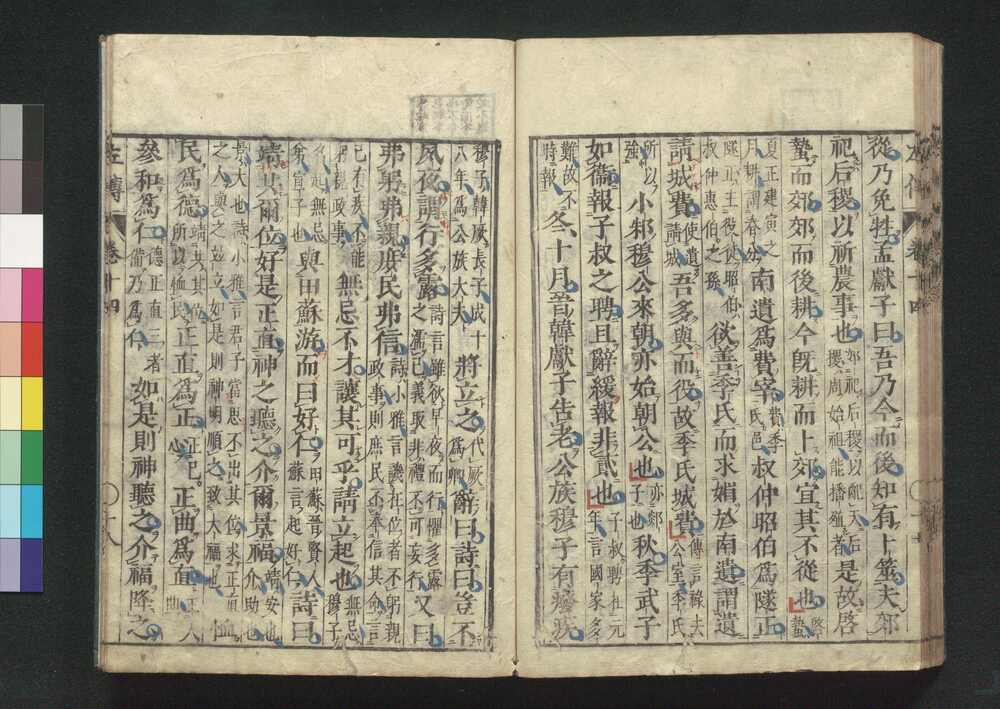 從乃免牲孟獻子曰吾乃今而後知有卜筮夫郊
祀后稷以祈農事也郊祀后稷以配天后稷周始祖能播殖者是故啓
蟄而郊郊而後耕今既耕而卜郊宜其不從也啓蟄
夏正建寅之月耕謂春分南遺爲費宰費季氏邑叔仲昭伯爲隧正
隧正主役徒昭伯叔仲惠伯之孫欲善季氏而求媚於南遺謂遺
請城費使遺請城吾多與而役故季氏城費傳言祿去公室季氏
所以強小邾穆公來朝亦始朝公也亦郯子也秋季武子
如衞報子叔之聘且辭緩報非貳也子叔聘在元年言國家多
難故不時報冬十月晉韓獻子告老公族穆子有癈疾
穆子韓厥長子成十八年爲公族大夫將立之代厥爲卿辭曰詩曰豈不
夙夜謂行多露詩言雖欲早夜而行懼多露之濡己義取非禮不可妄行又曰
弗躬弗親庶民弗信詩小雅言譏在位者不躬親政事則庶民不奉信其命言
已有疾不能躬親政事無忌不才讓其可乎請立起也無忌穆子
名起無忌弟宣子也與田蘇游而曰好仁田蘇晉賢人蘇言起好仁詩曰
靖共爾位好是正直神之聽之介爾景福靖安也介助也
景大也詩小雅言君子當思不出其位求正直之人與之並立如是則神明順之致大福也恤
民爲德靖共其位所以恤民正直爲正正己心正曲爲直正人曲
參和爲仁德正直三者備乃爲仁如是則神聽之介福降之
左傳 卷十四 十八